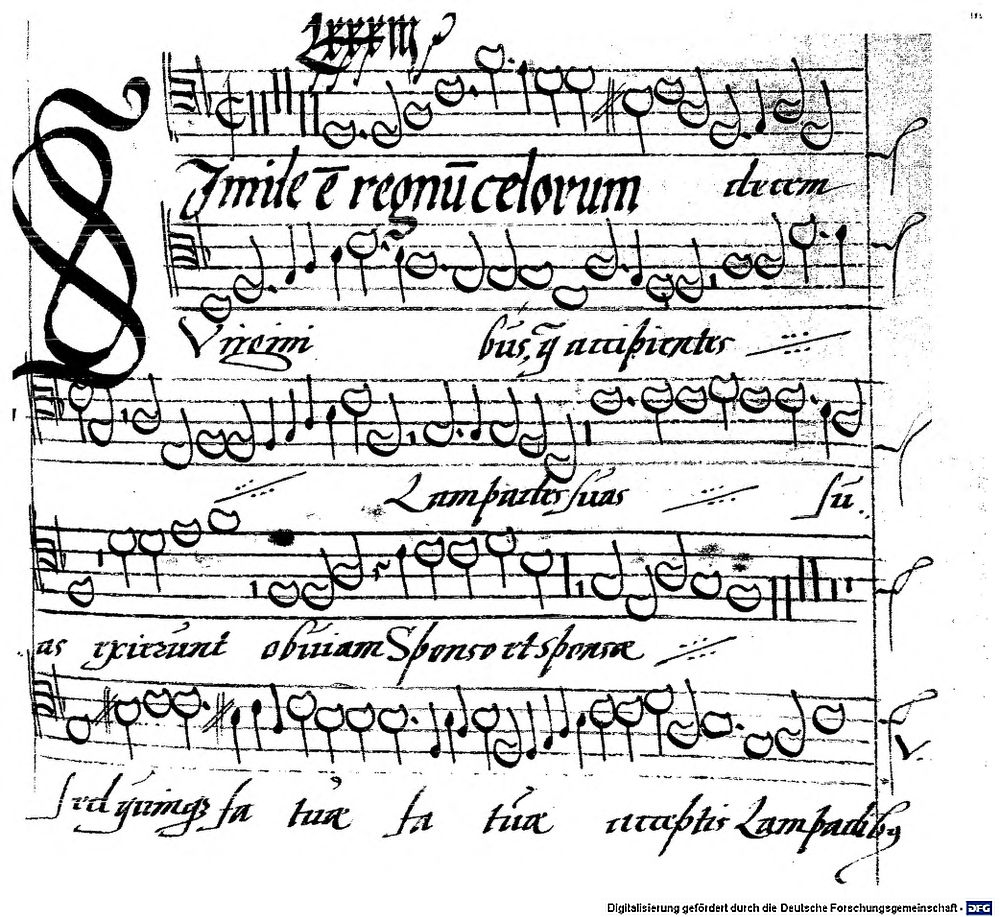 Lxxxiij
Simile ē regnū celorum decem
Virgini bus, q̃ accipientes
Lampades suas su
as exierunt obuiam Sponso et sponsæ
sed quinqꝫ fa tuæ fa tuæ acceptis Lampadibꝰ
Digitalisierung gefördert durch die Deutsche Forschungsgemeinschaft - DFG